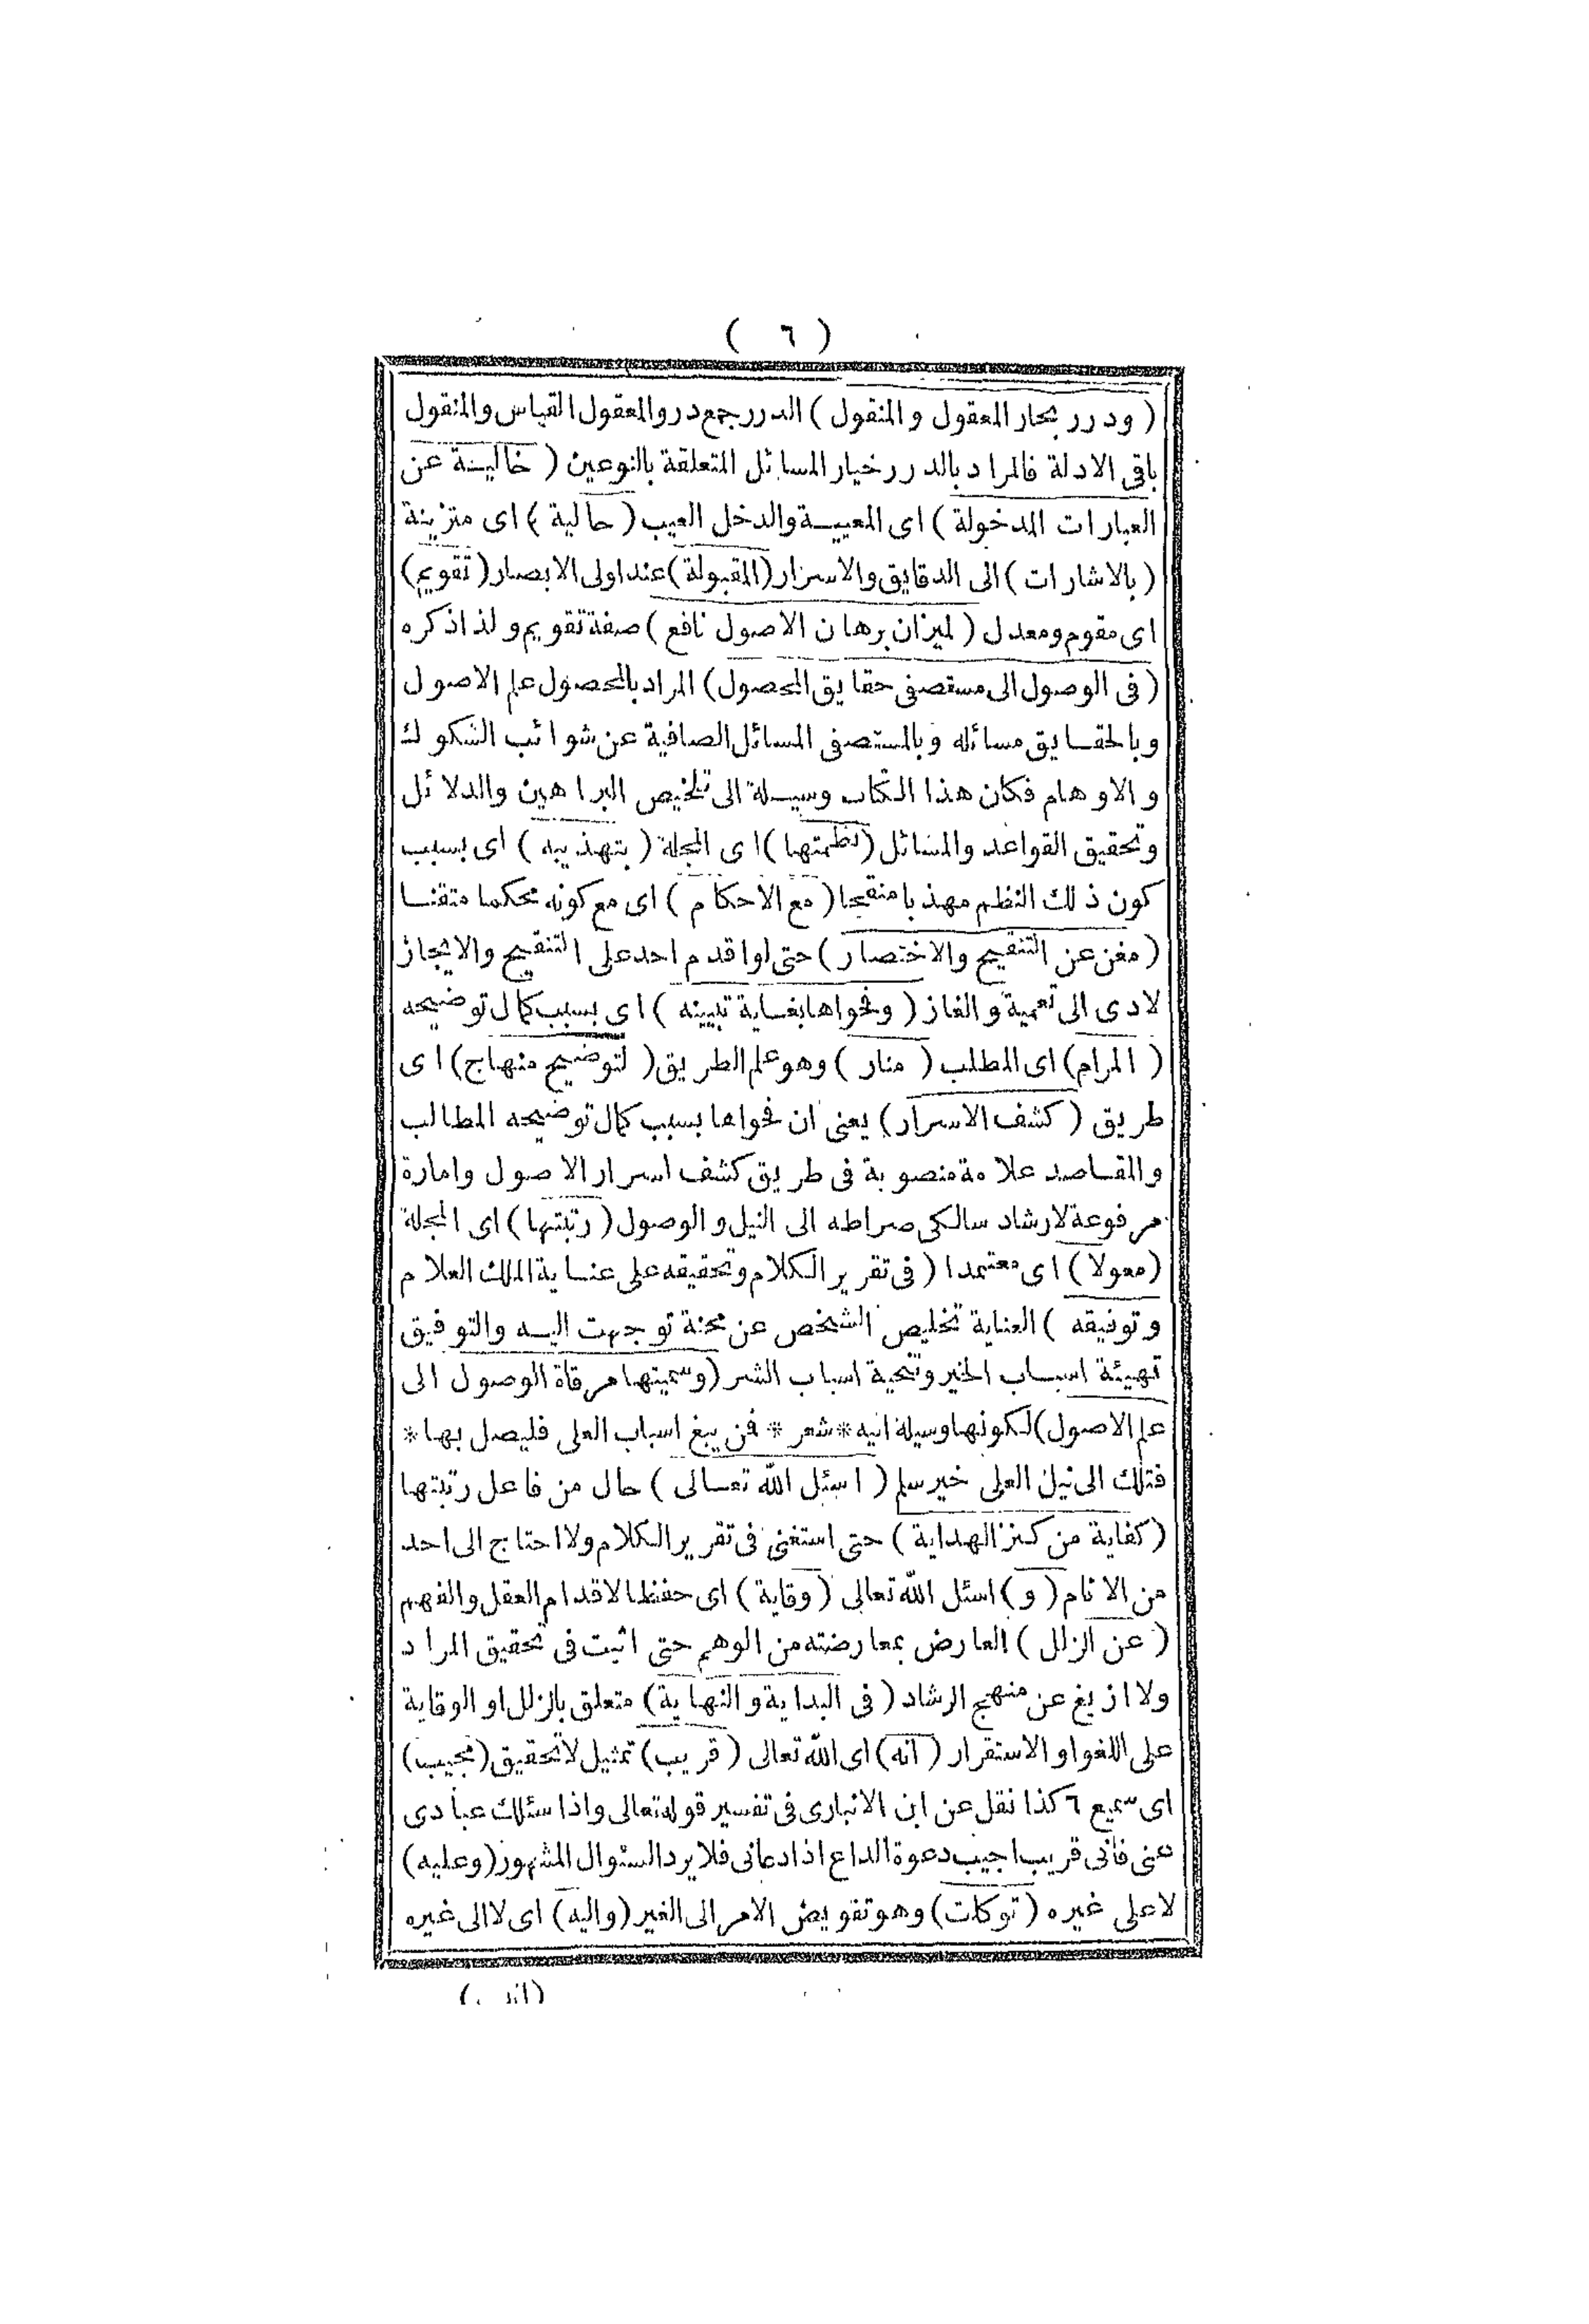 ( ٦ )
( ودرر بحار المعقول والمنقول ) الدرر جمع در والمعقول القياس والمنقول
باقى الادلة فالمراد بالدرر خيار المسائل المتعلقة بالنوعين ( خالية عن
العبارات المدخولة ) اى المعيبة والدخل العيب ( حالية ) اى متزينة
( بالاشارات ) الى الدقايق والاسرار ( المقبولة ) عند اولى الابصار ( تقويم )
اى مقوم ومعدل ( لميزان برهان الاصول نافع ) صفة تقويم ولذا ذكره
( فى الوصول الى مستصفى حقايق المحصول ) المراد بالمحصول علم الاصول
وبالحقايق مسائله وبالمستصفى المسائل الصافية عن شوائب الشكوك
والاوهام فكان هذا الكتاب وسيلة الى تلخيص البراهين والدلائل
وتحقيق القواعد والمسائل ( نظمتها ) اى المجلة ( بتهذيبه ) اى بسبب
كون ذلك النظم مهذبا منقحا ( مع الاحكام ) اى مع كونه محكما متقنا
( مغن عن التنقيح والاختصار ) حتى لو اقدم احد على التنقيح والايجاز
لادى الى تعمية والغاز ( وفحواها بغاية تبيينه ) اى بسبب كمال توضيحه
( المرام ) اى المطلب ( منار ) وهو علم الطريق ( لتوضيح منهاج ) اى
طريق ( كشف الاسرار ) يعنى ان فحواها بسبب كمال توضيحه المطالب
والمقاصد علامة منصوبة فى طريق كشف اسرار الاصول وامارة
مرفوعة لارشاد سالكى صراطه الى النيل والوصول ( رتبتها ) اى المجلة
( معولا ) اى معتمدا ( فى تقرير الكلام وتحقيقه على عناية الملك العلام
وتوفيقه ) العناية تخليص الشخص عن محنة توجهت اليه والتوفيق
تهيئة اسباب الخير وتنحية اسباب الشر ( وسميتها مرقاة الوصول الى
علم الاصول ) لكونها وسيلة اليه * شعر * فمن يبغ اسباب العلى فليصل بها *
فتلك الى نيل العلى خير سلم ( اسئل الله تعالى ) حال من فاعل رتبتها
( كفاية من كنز الهداية ) حتى استغنى فى تقرير الكلام ولا احتاج الى احد
من الانام ( و ) اسئل الله تعالى ( وقاية ) اى حفظا لاقدام العقل والفهم
( عن الزلل ) العارض بمعارضته من الوهم حتى اثبت فى تحقيق المراد
ولا ازيغ عن منهج الرشاد ( فى البداية والنهاية ) متعلق بالزلل او الوقاية
على اللغو او الاستقرار ( انه ) اى الله تعالى ( قريب ) تمثيل لا تحقيق ( مجيب )
اى سميع ٦ كذا نقل عن ابن الانبارى فى تفسير قوله تعالى واذا سئلك عبادى
عنى فانى قريب اجيب دعوة الداع اذا دعانى فلا يرد السئوال المشهور ( وعليه )
لا على غيره ( توكلت ) وهو تفويض الامر الى الغير ( واليه ) اى لا الى غيره